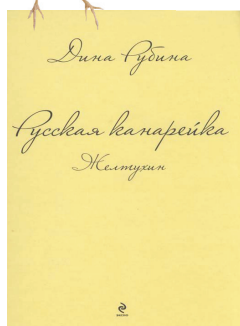 Дина Рубина
Русская канарейка
Желтухин